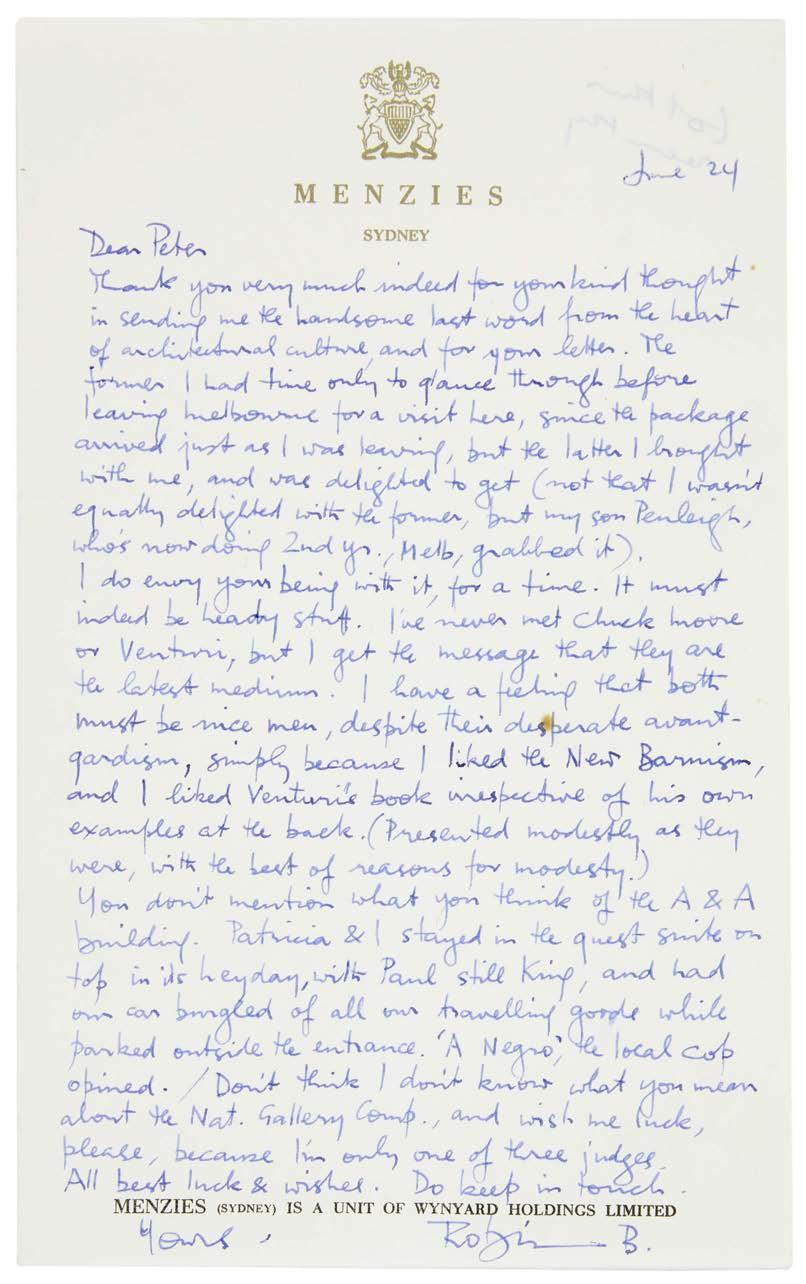 June 24
MENZIES
SYDNEY
Dear Peter
Thank you very much indeed for your kind thought
in sending me the handsome last word from the heart
of architectural culture, and for your letter. The
former I had time only to glance through before
leaving Melbourne for a visit here, since the package
arrived just as I was leaving, but the latter I brought
with me, and was delighted to get (not that I wasn't
equally delighted with the former, but my son Penleigh,
who's now doing 2nd yr., Melb, grabbed it).
I do envy your being with it, for a time. It must
indeed be heady stuff. I've never met Chuck Moore
or Venturi, but I get the message that they are
the latest medium. I have a feeling that both
must be nice men, despite their desperate avant-
gardism, simply because I liked the New Barnism,
and I liked Venturi's book irrespective of his own
examples at the back. (Presented modestly as they
were, with the best of reasons for modesty!)
You don't mention what you think of the A & A
building. Patricia & I stayed in the guest suite on
top in its heyday, with Paul still King, and had
our car burgled of all our travelling goods while
parked outside the entrance. 'A Negro', the local cop
opined. / Don't think I don't know what you mean
about the Nat. Gallery Comp., and wish me luck,
please, because I'm only one of three judges.
All best luck & wishes. Do keep in touch.
MENZIES (SYDNEY) IS A UNIT OF WYNYARD HOLDINGS LIMITED
Yours,
Robin B.